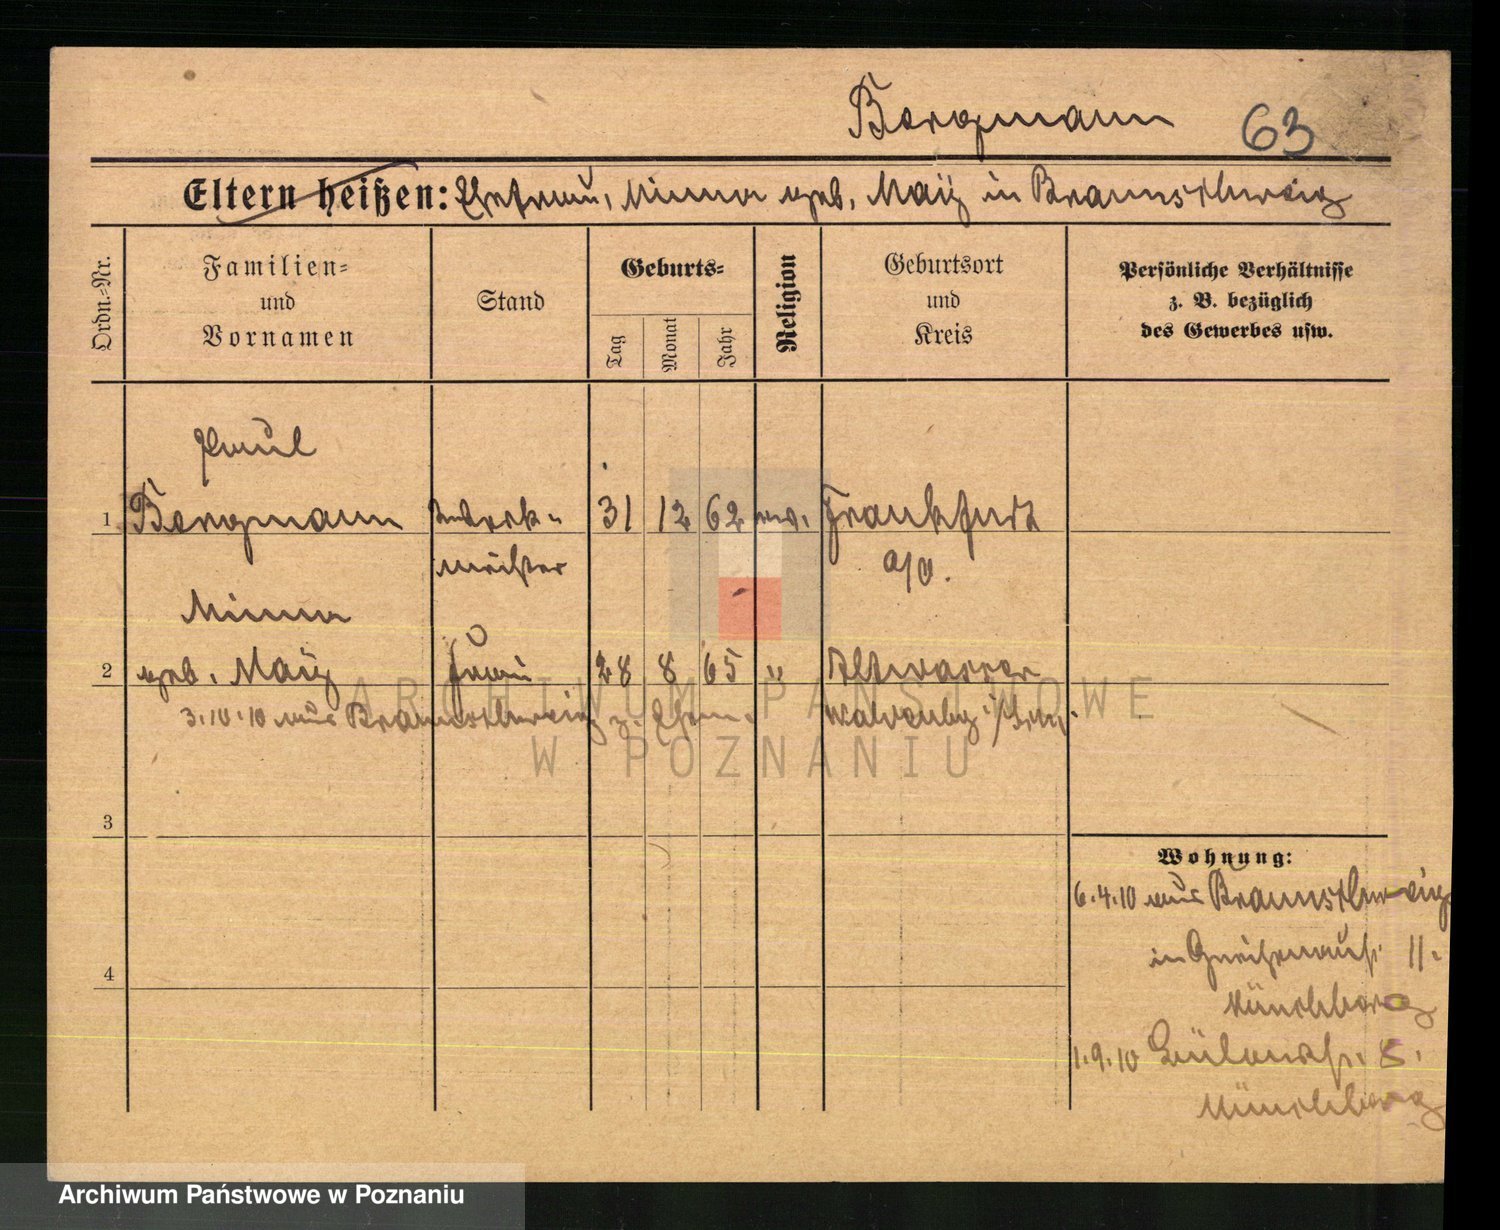 Bergmann 63
Eltern heißen: Ehefrau, Minna geb. Maÿ in Braunschweig
Ordn.-Nr.
Familien-
und
Vornamen
Stand
Geburts-
Tag
Monat
Jahr
Religion
Geburtsort
und
Kreis
Persönliche Verhältnisse
z. B. bezüglich
des Gewerbes usw.
Paul
1 Bergmann Werk- 31 12 62 ev. Frankfurt
meister a/O.
Minna
2 geb. Maÿ Frau 28 8 65 " Altwasser
3.10.10 aus Braunschweig z. Ehem. Waldenbg.
3
4
Wohnung:
6.4.10 aus Braunschweig
in Gneisenaustr. 11.
1.9.10 8.
ARCHIWUM PAŃSTWOWE
W POZNANIU
Archiwum Państwowe w Poznaniu